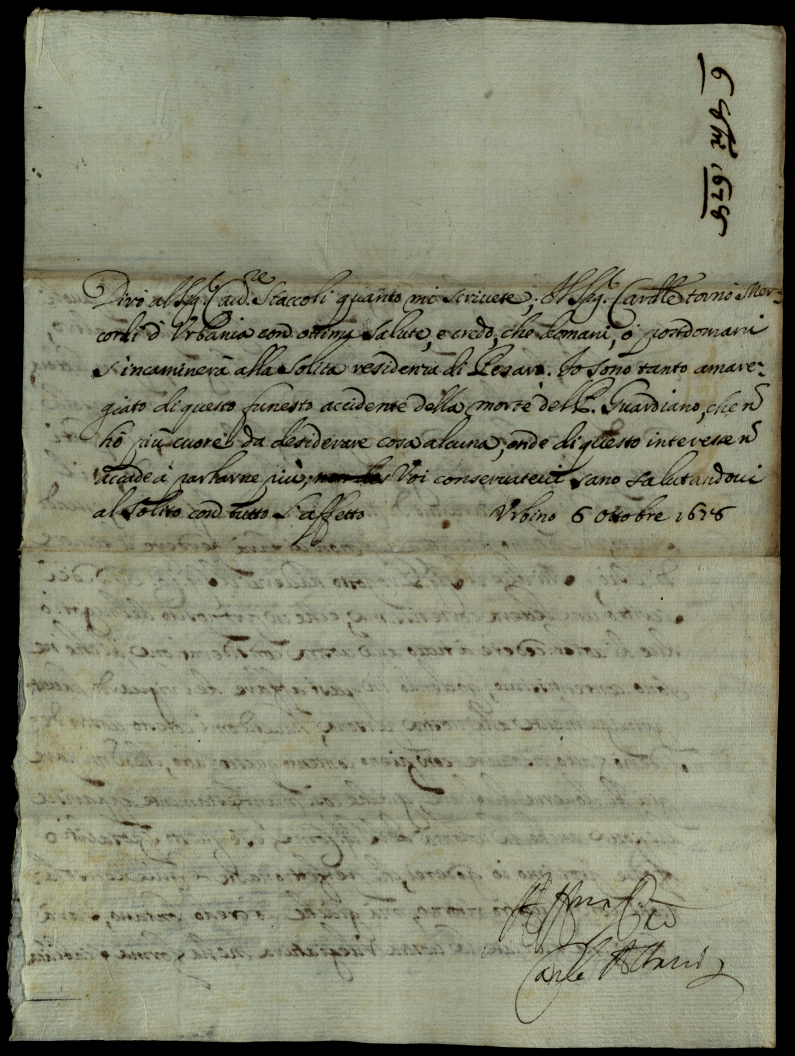 6 8bre 1678
Dirò al Sig.r Cau.re Staccoli quanto mi scriuete; Il Sig.r Card.le tornò Mer-
cordi d'Vrbania con ottima salute, e credo, che domani, ò posdomani
s'incaminerà alla solita residenza di Pesaro. Io sono tanto amare-
giato di questo funesto accidente della morte del P. Guardiano, che n
hò più cuore da desiderare cosa alcuna, onde di questo interesse n
accade à parlarne più; Voi conseruateui sano salutandoui
al solito con tutto l'affetto Vrbino 6 Ottobre 1678
Aff.mo Zio
Carlo Albani